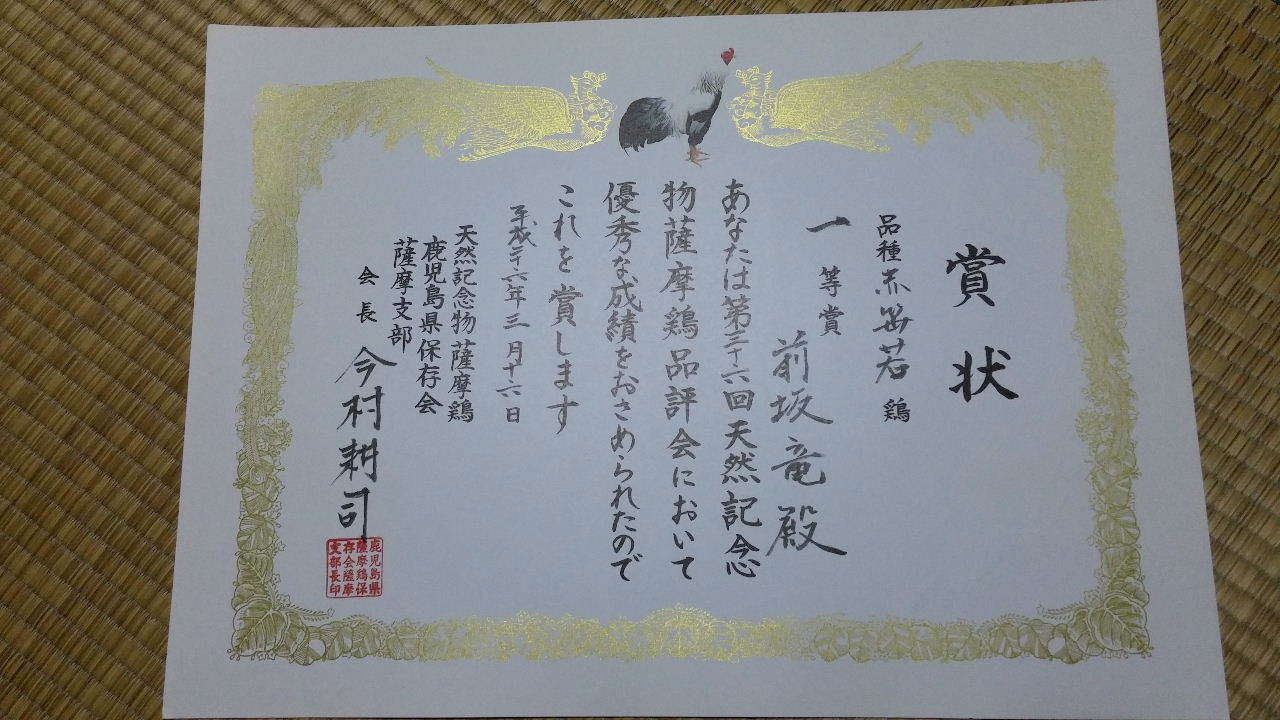 賞状
品種 赤笹若鶏
一等賞
前坂竜殿
あなたは第三十六回天然記念
物薩摩鶏品評会において
優秀な成績をおさめられたので
これを賞します
平成二十六年三月十六日
天然記念物薩摩鶏
鹿児島県保存会
薩摩支部
会長 今村耕司
鹿児島県
薩摩鶏保
存会薩摩
支部長印